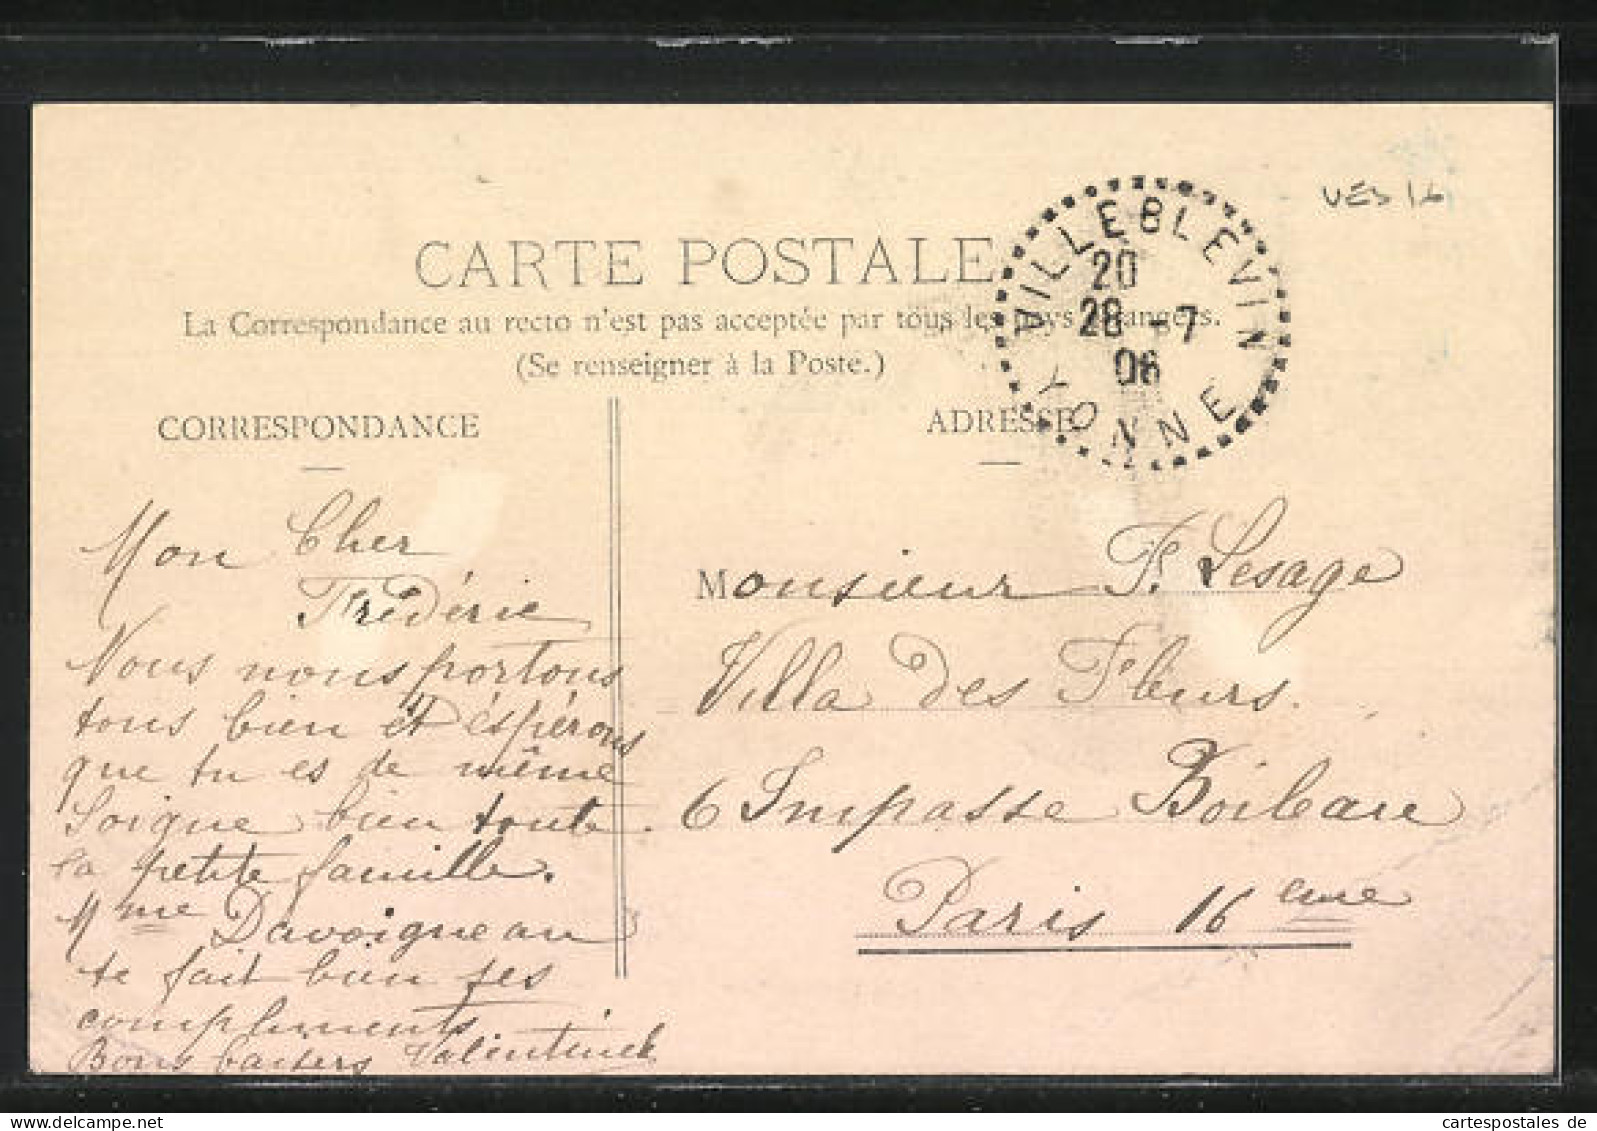 VILLEBLEVIN
20
28 -7
06
YONNE
CARTE POSTALE
La Correspondance au recto n'est pas acceptée par tous les pays étrangers.
(Se renseigner à la Poste.)
CORRESPONDANCE
Mon Cher
Frédéric
Nous nous portons
tous bien et espérons
que tu es de même
Soigne bien toute
la petite famille.
Mme Davoigneau
te fait bien ses
compliments
Bons baisers Valentine
ADRESSE
Monsieur F. Lesage
Villa des Fleurs.
6 Impasse Boileau
Paris 16eme
cartespostales de